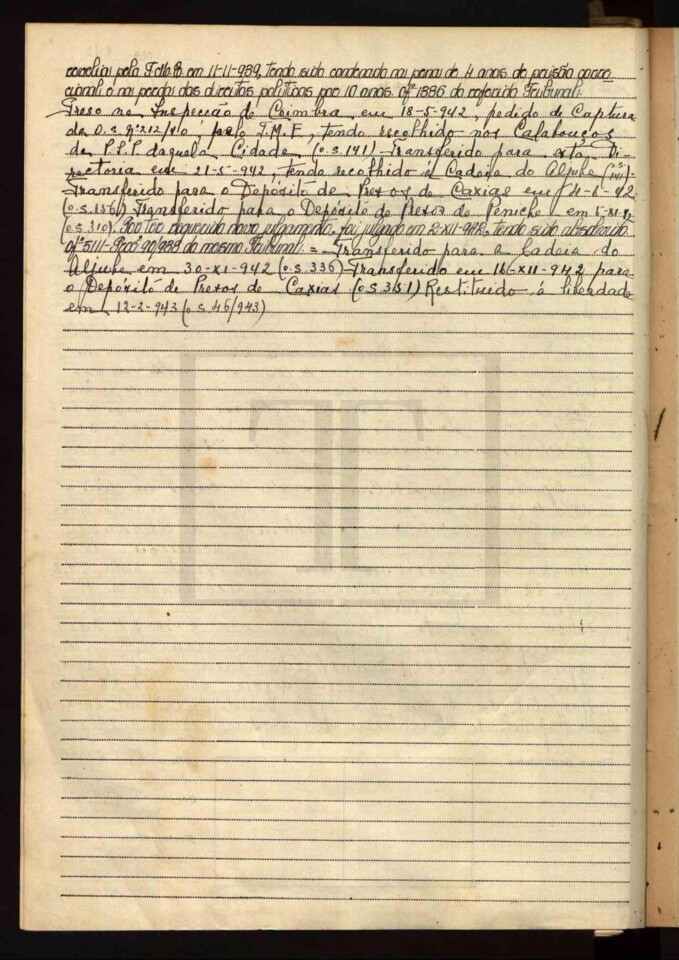 revelia pelo T.M.E. em 11-11-939, tendo sido condenado na pena de 4 anos de prisão correc
cional e na perda dos direitos politicos por 10 anos. Of.º 1386 do referido Tribunal.
Preso na Inspecção de Coimbra em 18-5-942, pedido de Captura
da O.S. n.º 212/40, pelo T.M.E, tendo recolhido nos Calabouços
da P.S.P. daquela Cidade (o.s.141) Transferido para esta Di-
rectoria em 21-5-942, tendo recolhido á Cadeia do Aljube
Transferido para o Depósito de Presos de Caxias em 4-6-942
(o.s.156) Transferido para o Depósito de Presos de Peniche em 5-XI-942
(o.s 310). Por ter requerido novo julgamento, foi julgado em 2-XII-942, tendo sido absolvido.
Of.º 5111-Proc. 90/938 do mesmo Tribunal. = Transferido para a Cadeia do
Aljube em 30-XI-942 (o.s 336) Transferido em 16-XII-942 para
o Depósito de Presos de Caxias (o.s 351) Restituido á liberdade
em 12-2-943 (o.s.46/943)